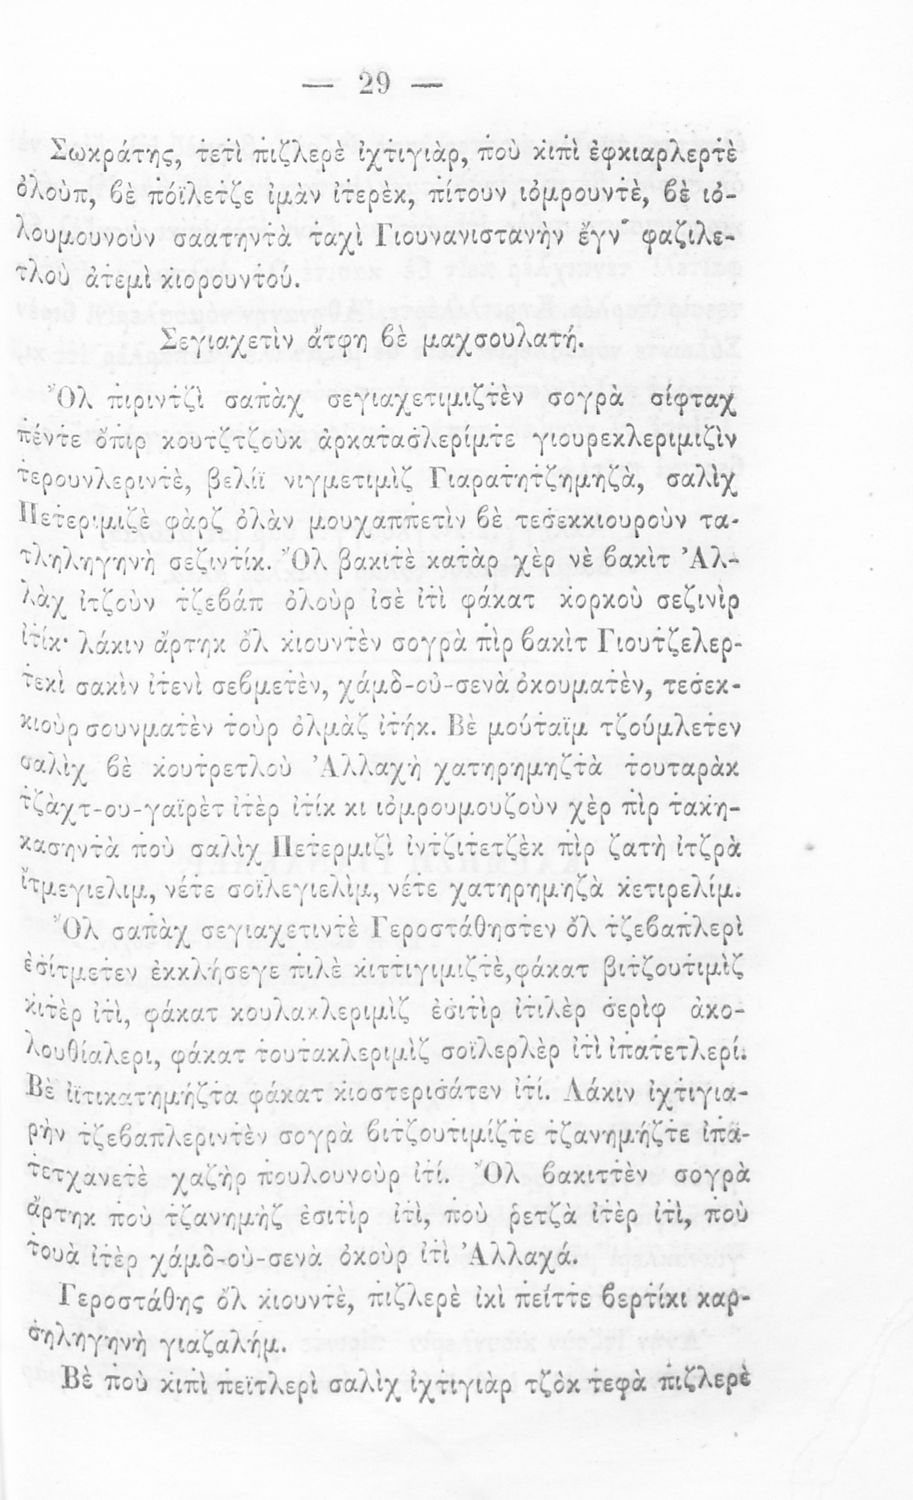 — 29 —
Σωκράτης, τ̇ετὶ π̇ιζλερὲ ἰχτ̇ιγιὰρ, π̇οὺ κ̇ιπὶ ἐφκιαρλερτ̇ὲ
ὀλοὺπ, βὲ π̇όϊλετζε ἰμὰν ἰτ̇ερὲκ, π̇ίτουν ἰὀμρουντ̇ὲ, βὲ ἰὀ-
λουμουνοὺν σαατηντ̇ὰ τ̇αχὶ Γιουνανιστανὴν ἔγν᾿ φαζιλε-
τλοὺ ἀτ̇εμὶ κ̇ιορουντ̇ού.
Σεγιαχετὶν ἄτφη βὲ μαχσουλατή.
Ὂλ π̇ιριντζὶ σαπὰχ σεγιαχετιμιζτ̇ὲν σογρὰ σίφταχ
π̇έντε ὄπ̇ιρ κουτζτζοὺκ ἀρκατ̇ασ̇λερίμτε γιουρεκλεριμιζὶν
τ̇ερουνλεριντ̇ὲ, βελίϊ νιγμετιμὶζ Γιαρατ̇ητζημηζὰ, σαλὶχ
Πετ̇ερ᾿μιζὲ φὰρζ ὀλὰν μουχαππετὶν βὲ τεσ̇εκκιουροὺν τα-
τληληγηνὴ σεζιντ̇ίκ. Ὂλ βακιτὲ κατ̇ὰρ χὲρ νὲ βακὶτ Ἀλ-
λὰχ ἰτζοὺν τζεβάπ ὀλοὺρ ἰσὲ ἰτ̇ὶ φάκατ κορκοὺ σεζινὶρ
ἰτ̇ίκ· λάκιν ἄρτηκ ὂλ κ̇ιουντ̇ὲν σογρὰ π̇ὶρ βακὶτ Γιουτζελερ-
τ̇εκὶ σακὶν ἰτ̇ενὶ σεβμετ̇ὲν, χάμδ-οὐ-σενὰ ὀκουματ̇ὲν, τεσ̇εκ-
κιοὺρ σουνματ̇ὲν τ̇οὺρ ὀλμὰζ ἰτ̇ήκ. Βὲ μούτ̇αϊμ τζούμλετ̇εν
σαλὶχ βὲ κουτ̇ρετλοὺ Ἀλλαχὴ χατηρημηζτ̇ὰ τ̇ουταρὰκ
τ̇ζὰχτ-ου-γαϊρὲτ ἰτ̇ὲρ ἰτ̇ίκ κι ἰὀμρουμουζοὺν χὲρ π̇ὶρ τ̇ακη-
κασηντ̇ὰ π̇οὺ σαλὶχ Πετ̇ερμιζὶ ἰντζιτετζὲκ π̇ὶρ ζατὴ ἰτζρὰ
ἰτμεγιελιμ, νέτε σοϊλεγιελὶμ, νέτε χατηρημηζὰ κ̇ετιρελίμ.
Ὂλ σαπὰχ σεγιαχετιντ̇ὲ Γεροστάθηστεν ὂλ τζεβαπλερὶ
ἐσ̇ίτμετ̇εν ἐκκλήσεγε π̇ιλὲ κ̇ιττιγιμιζτ̇ὲ, φάκατ βιτζουτ̇ιμὶζ
κ̇ιτ̇ὲρ ἰτ̇ὶ, φάκατ κουλακλεριμὶζ ἐσ̇ιτὶρ ἰτ̇ιλὲρ σ̇ερὶφ ἀκο-
λουθίαλερι, φάκατ τ̇ουτ̇ακλεριμὶζ σοϊλερλὲρ ἰτ̇ὶ ἰπατ̇ετλερί.
Βὲ ἰϊτικατημήζτ̇α φάκατ κ̇ιοστερισ̇άτεν ἰτ̇ί. Λάκιν ἰχτ̇ιγια-
ρὴν τζεβαπλεριντ̇ὲν σογρὰ βιτζουτ̇ιμίζτ̇ε τ̇ζανημήζτ̇ε ἰπα-
τ̇ετχανετ̇ὲ χαζὴρ π̇ουλουνοὺρ ἰτ̇ί. Ὂλ βακιττ̇ὲν σογρὰ
ἄρτηκ π̇οὺ τ̇ζανημὴζ ἐσ̇ιτὶρ ἰτ̇ὶ, π̇οὺ ῥετζὰ ἰτ̇ὲρ ἰτ̇ὶ, π̇οὺ
τ̇ουὰ ἰτ̇ὲρ χάμδ-οὐ-σενὰ ὀκοὺρ ἰτ̇ὶ Ἀλλαχά.
Γεροστάθης ὂλ κ̇ιουντ̇ὲ, π̇ιζλερὲ ἰκὶ π̇εΐττε βερτ̇ίκι καρ-
σ̇ηληγηνὴ γιαζαλήμ.
Βὲ π̇οὺ κ̇ιπ̇ὶ π̇εϊτλερὶ σαλὶχ ἰχτ̇ιγιὰρ τζὸκ τ̇εφὰ π̇ιζλερὲ